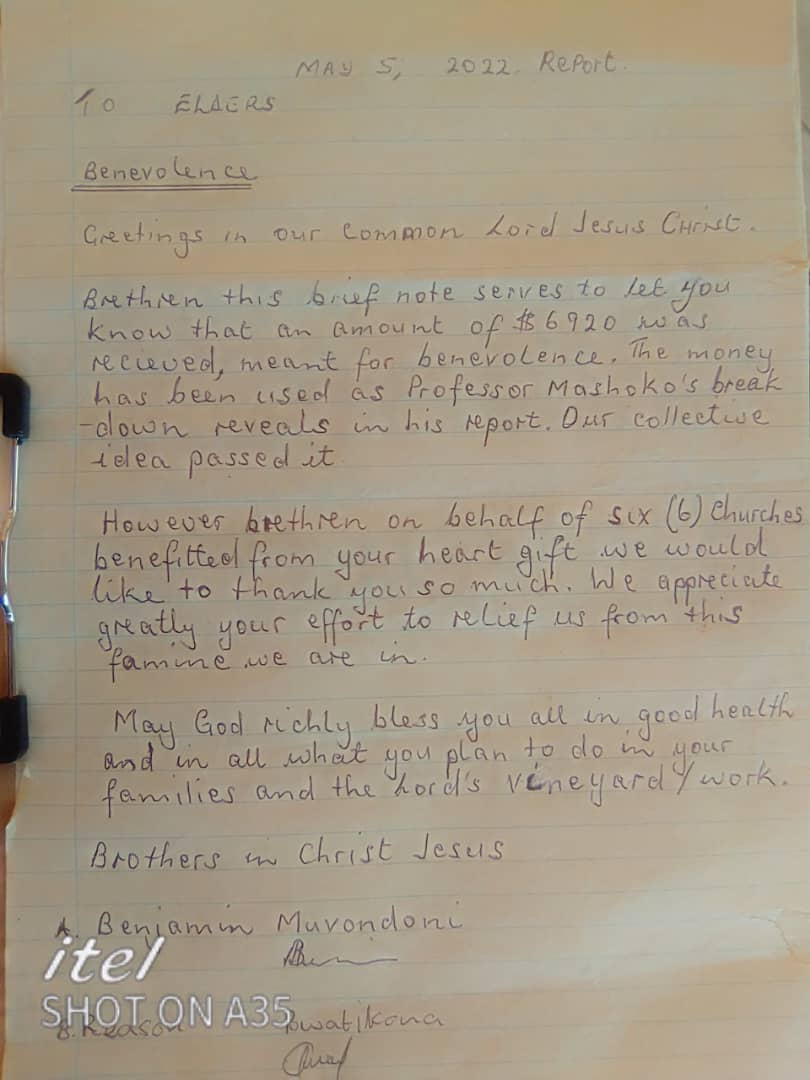 MAY 5, 2022. Report.
TO ELDERS
Benevolence
Greetings in our common Lord Jesus Christ.
Brethren this brief note serves to let you
know that an amount of $6920 was
recieved, meant for benevolence. The money
has been used as Professor Mashoko's break
-down reveals in his report. Our collective
idea passed it
However brethren on behalf of six (6) Churches
benefitted from your heart gift we would
like to thank you so much. We appreciate
greatly your effort to relief us from this
famine we are in.
May God richly bless you all in good health
and in all what you plan to do in your
families and the Lord's vineyard/work.
Brothers in Christ Jesus
A. Benjamin Muvondoni
B. Reason
itel
SHOT ON A35